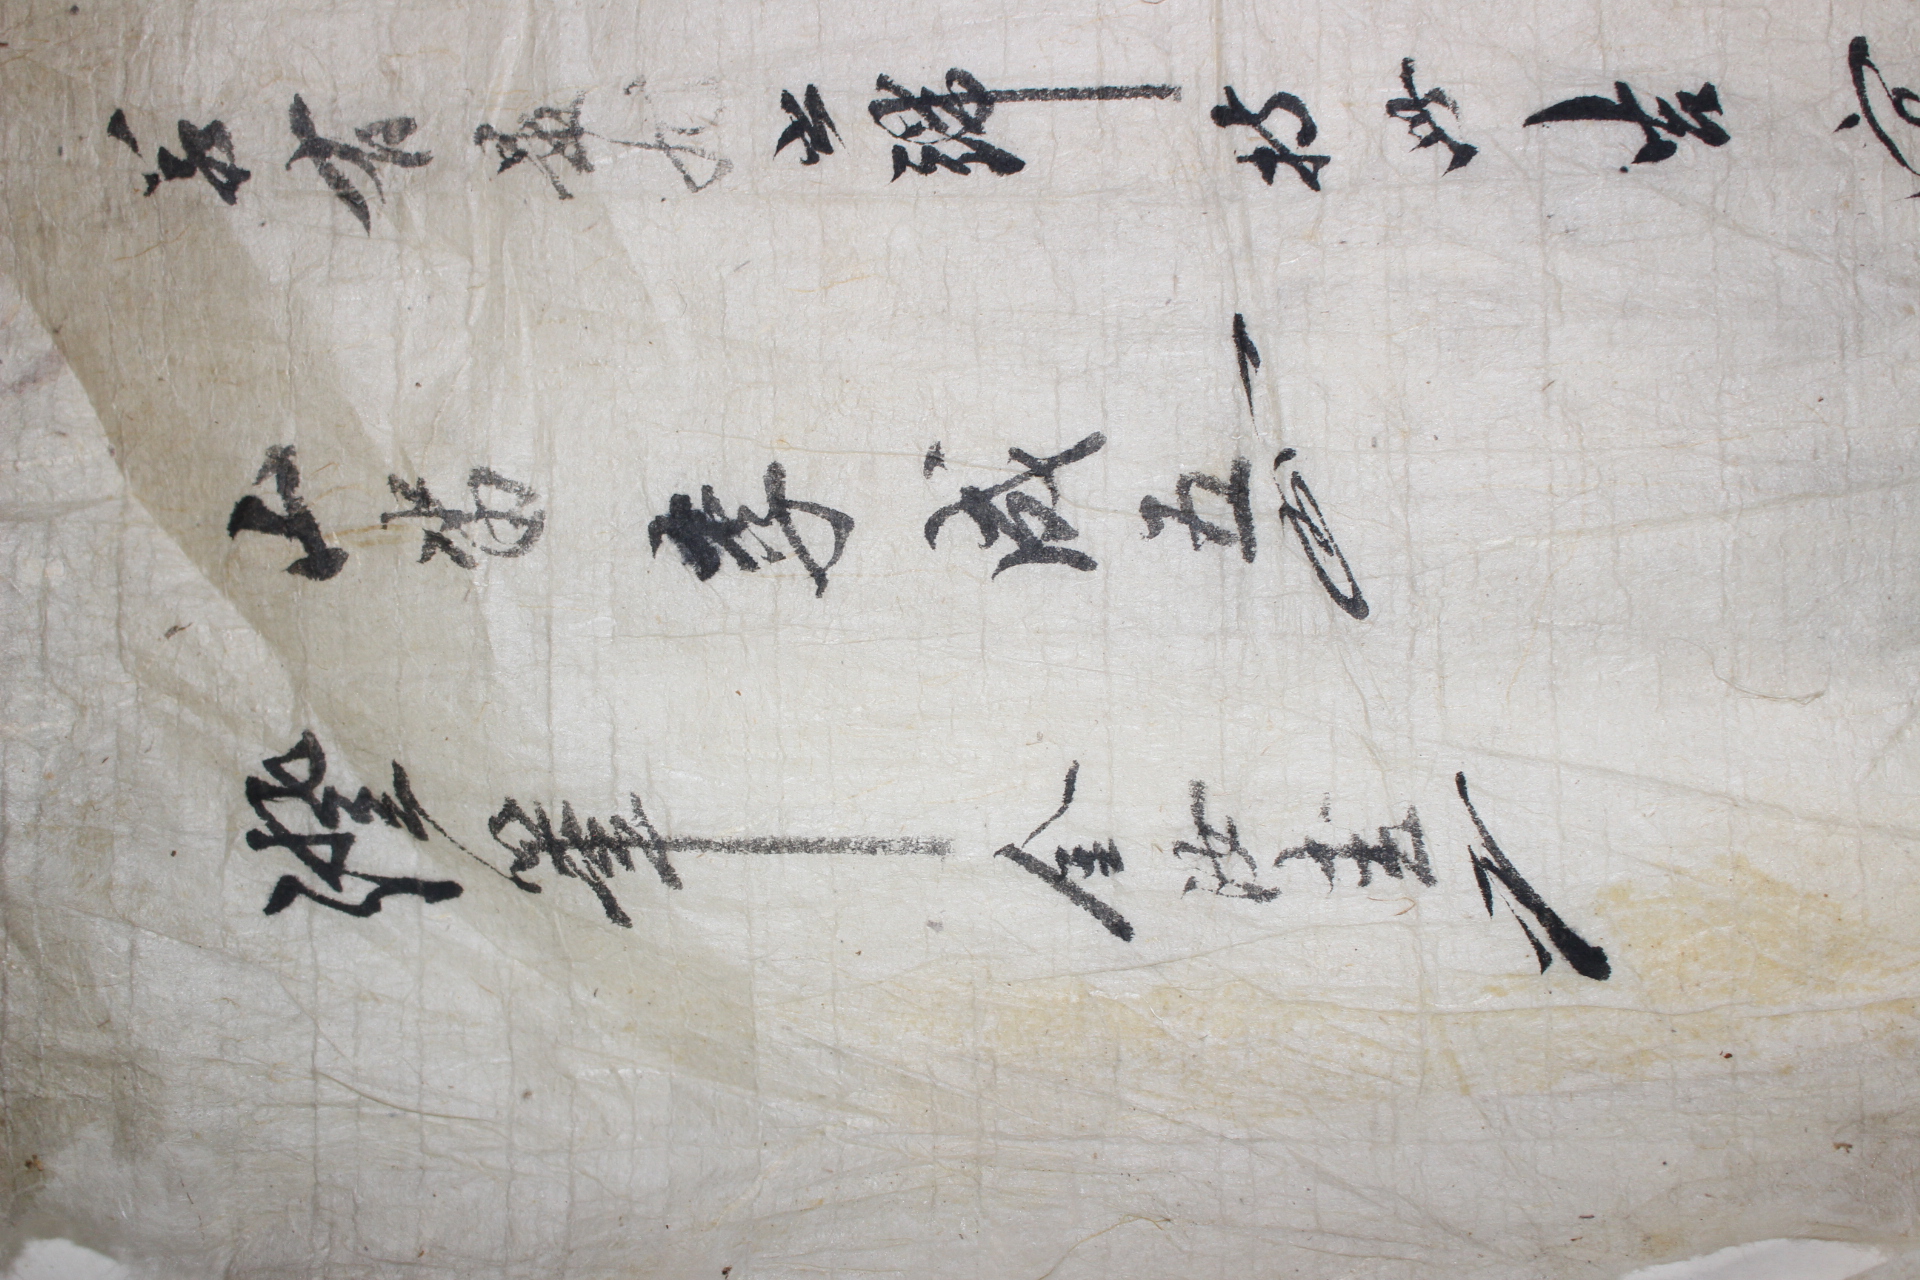 若有是非之端持此告官
山畓 李成五
證筆 金汝圭